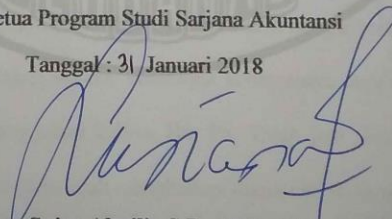 etua Program Studi Sarjana Akuntansi
Tanggal : 31 Januari 2018